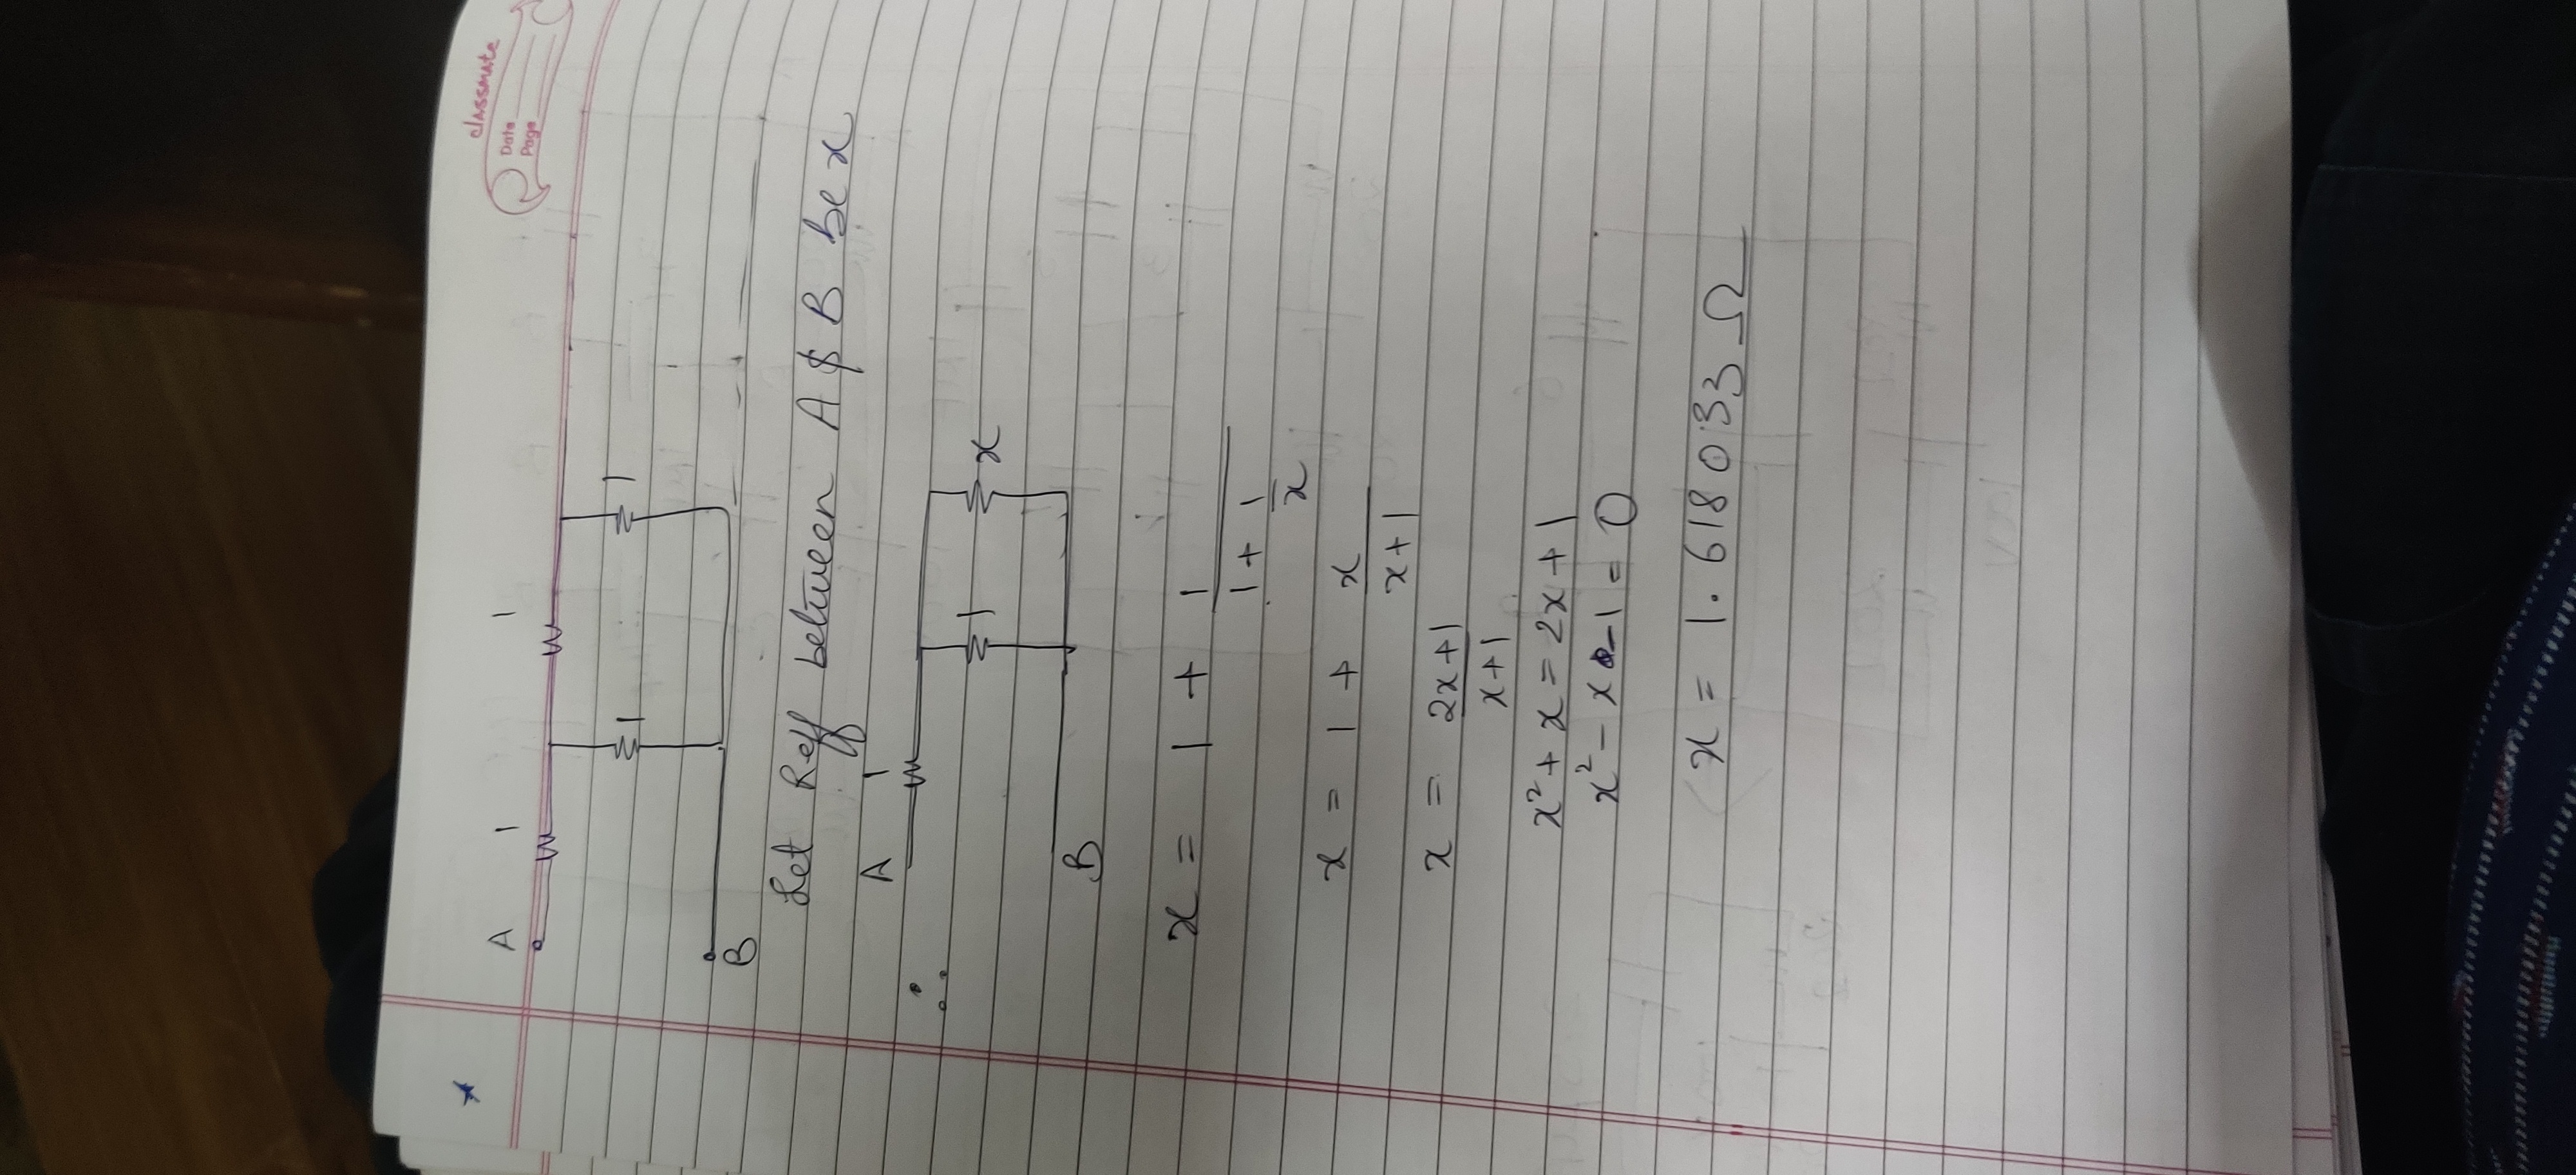 classmate
Date
Page
A 1 1
1 1
B
Let Reff between A & B be x
A 1
∴ 1 x
B
x = 1 + 1/(1 + 1/x)
x = 1 + x/(x+1)
x = (2x+1)/(x+1)
x² + x = 2x + 1
x² - x - 1 = 0
x = 1.618033 Ω